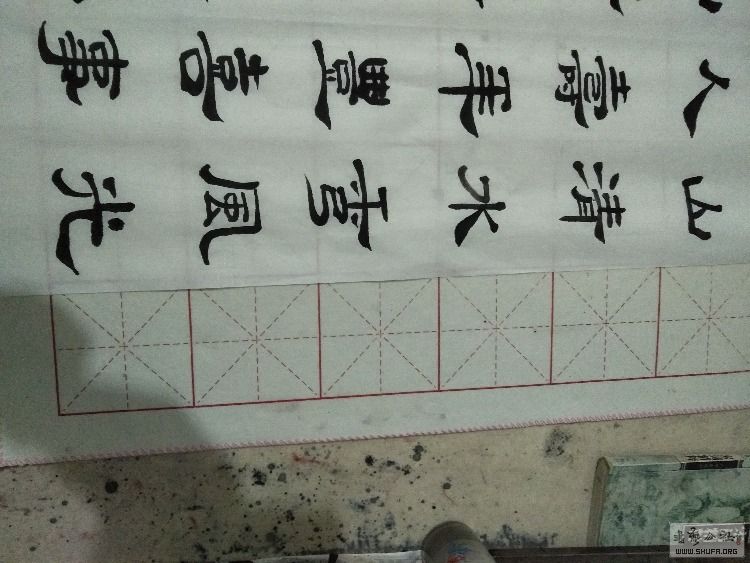 山清水秀風光
人壽年豐喜事
WWW.SHUFA.ORG